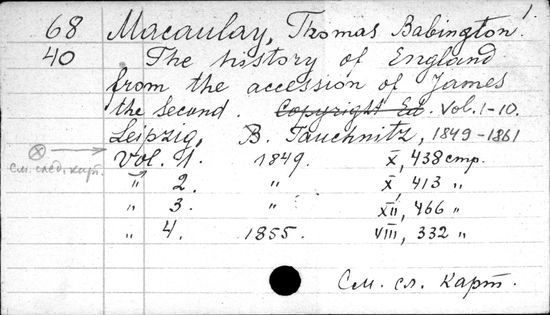 1.
68 Macaulay, Thomas Babington.
40 The history of England
from the accession of James
the second. Copyright Ed. Vol. 1-10.
Leipzig, B. Tauchnitz, 1849-1861
Vol. 1. 1849. X, 438 стр.
см. след. карт.
" 2. " X, 413 "
" 3. " XII, 466 "
" 4. 1855. VIII, 332 "
См. сл. карт.